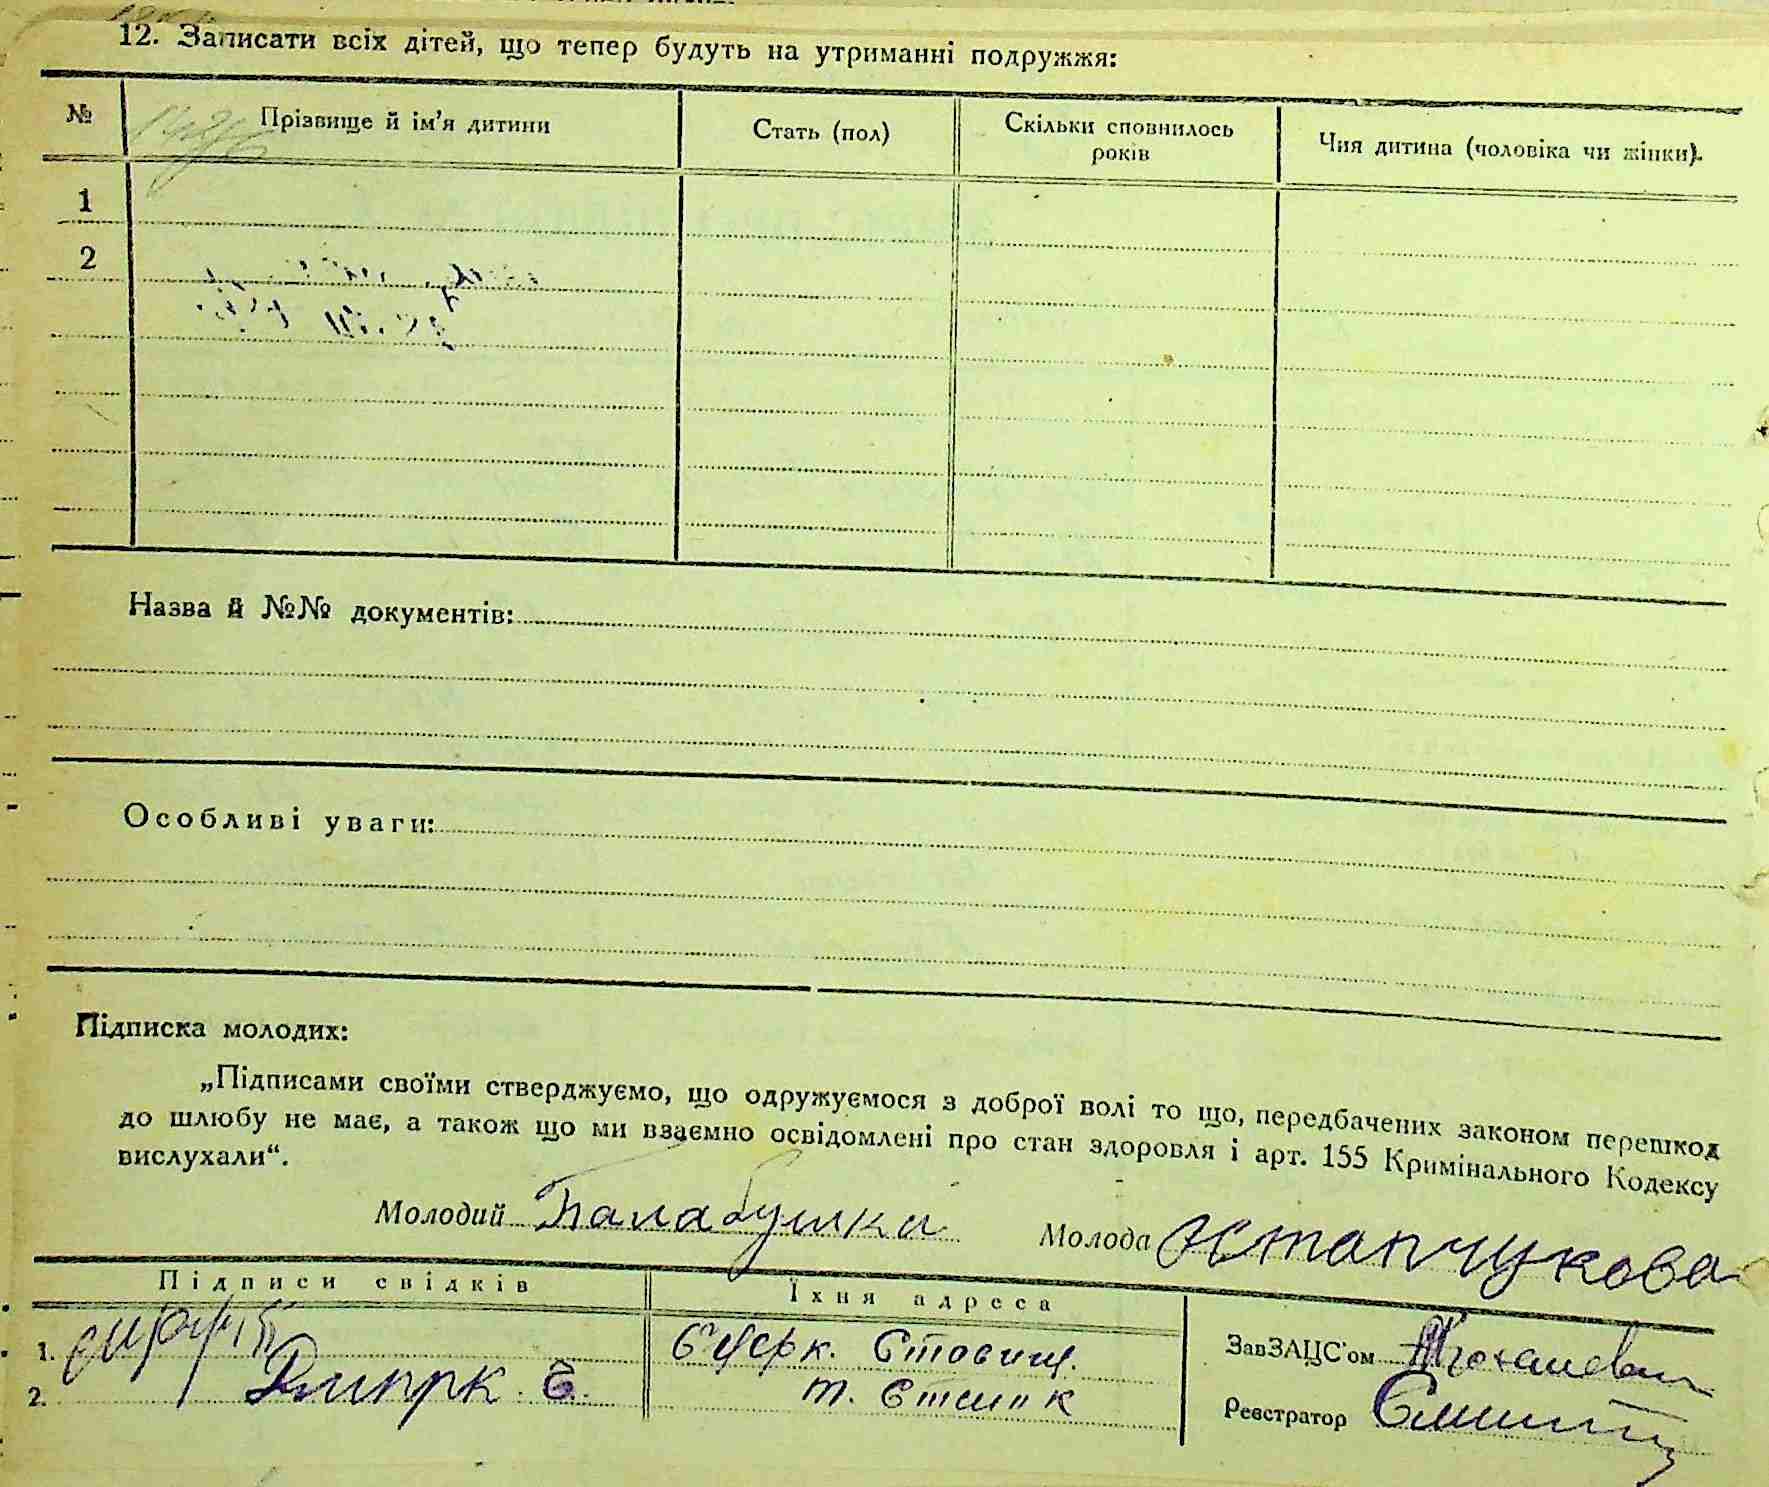 12. Записати всіх дітей, що тепер будуть на утриманні подружжя:
№ Прізвище й ім'я дитини Стать (пол) Скільки сповнилось років Чия дитина (чоловіка чи жінки).
1
2
Назва й №№ документів:
Особливі уваги:
Підписка молодих:
„Підписами своїми стверджуємо, що одружуємося з доброї волі то що, передбачених законом перешкод
до шлюбу не має, а також що ми взаємно освідомлені про стан здоровля і арт. 155 Кримінального Кодексу
вислухали“.
Молодий Балабушка Молода Остапчукова
Підписи свідків Їхня адреса
1. ЗавЗАЦС'ом
2. Реєстратор